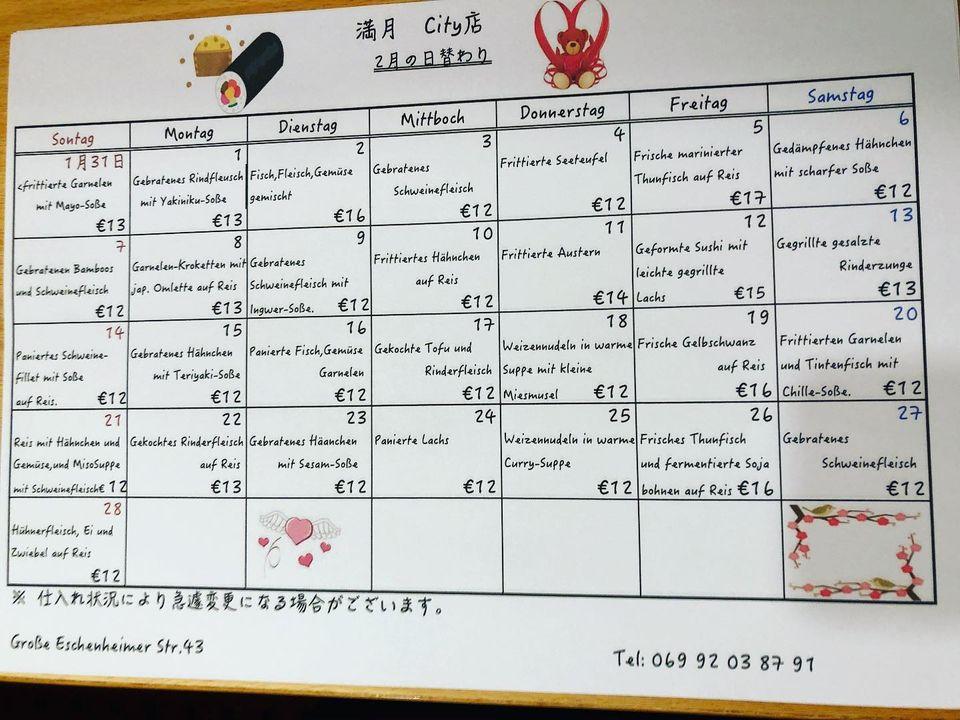 満月 City店
2月の日替わり
Sontag Montag Dienstag Mittboch Donnerstag Freitag Samstag
1月31日
<frittierte Garnelen
mit Mayo-Soße
€13
1
Gebratenes Rindfleusch
mit Yakiniku-Soße
€13
2
Fisch,Fleisch,Gemüse
gemischt
€16
3
Gebratenes
Schweinefleisch
€12
4
Frittierte Seeteufel
€12
5
Frische marinierter
Thunfisch auf Reis
€17
6
Gedämpfenes Hähnchen
mit scharfer Soße
€12
7
Gebratenen Bamboos
und Schweinefleisch
€12
8
Garnelen-Kroketten mit
jap. Omlette auf Reis
€13
9
Gebratenes
Schweinefleisch mit
Ingwer-Soße. €12
10
Frittiertes Hähnchen
auf Reis
€12
11
Frittierte Austern
€14
12
Geformte Sushi mit
leichte gegrillte
Lachs €15
13
Gegrillte gesalzte
Rinderzunge
€13
14
Paniertes Schweine-
fillet mit Soße
auf Reis. €12
15
Gebratenes Hähnchen
mit Teriyaki-Soße
€12
16
Panierte Fisch,Gemüse
Garnelen
€12
17
Gekochte Tofu und
Rinderfleisch
€12
18
Weizennudeln in warme
Suppe mit kleine
Miesmusel €12
19
Frische Gelbschwanz
auf Reis
€16
20
Frittierten Garnelen
und Tintenfisch mit
Chille-Soße. €12
21
Reis mit Hähnchen und
Gemüse,und MisoSuppe
mit Schweinefleisch€ 12
22
Gekochtes Rinderfleisch
auf Reis
€13
23
Gebratenes Häanchen
mit Sesam-Soße
€12
24
Panierte Lachs
€12
25
Weizennudeln in warme
Curry-Suppe
€12
26
Frisches Thunfisch
und fermentierte Soja
bohnen auf Reis €16
27
Gebratenes
Schweinefleisch
€12
28
Hühnerfleisch, Ei und
Zwiebel auf Reis
€12
※ 仕入れ状況により急遽変更になる場合がございます。
Große Eschenheimer Str.43
Tel: 069 92 03 87 91